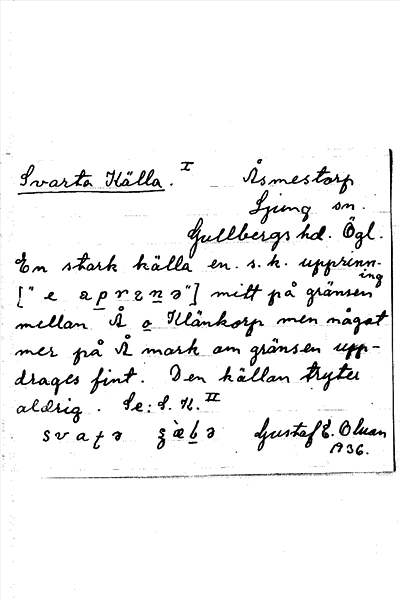 Svarta Källa. I Åsmestorp
Ljung sn.
Gullbergs hd. Ögl.
En stark källa en. s. k. upprinn-
ing
["e aprɛnə"] mitt på gränsen
mellan Å o Klänkorp men något
mer på Å mark om gränsen upp-
drages fint. Den källan tryter
aldrig. Se: S. K. II
Gustaf E. Oluan
1936.